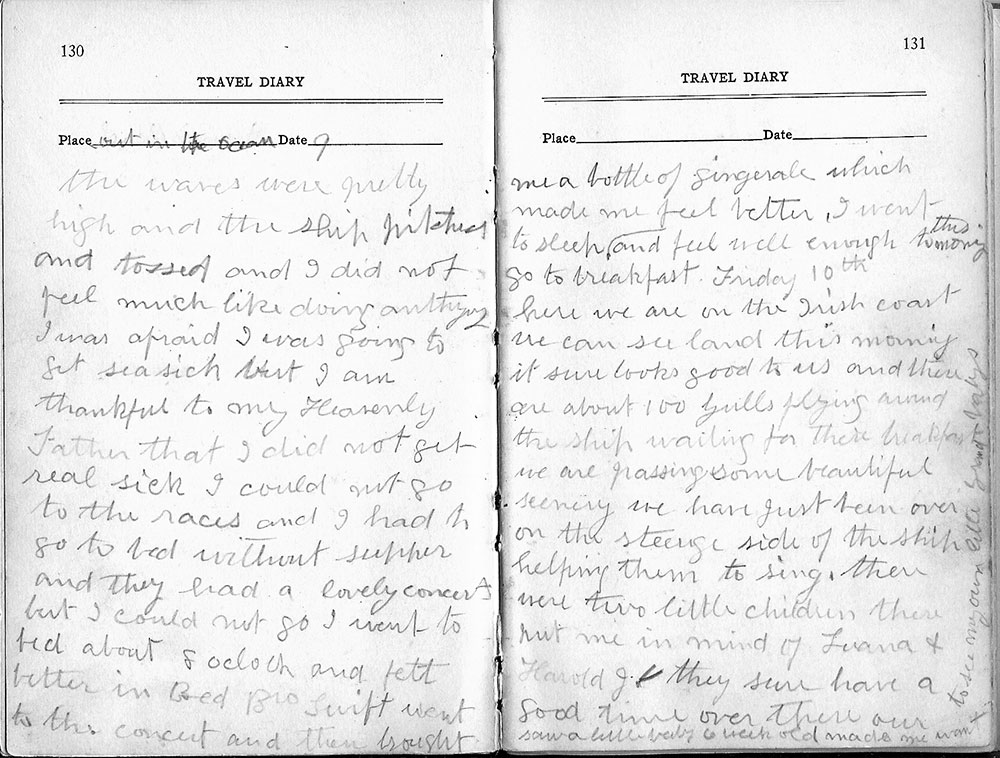 130
TRAVEL DIARY
Place out in the ocean Date 9
the waves were pretty
high and the ship pitched
and tossed and I did not
feel much like doing anthying
I was afraid I was going to
get seasick but I am
thankful to my Heavenly
Father that I did not get
real sick I could not go
to the races and I had to
go to bed without supper
and they had a lovely concert
but I could not go I went to
bed about 8 oclock and fett
better in Bed Bro Swift went
to the concert and then brought
131
TRAVEL DIARY
Place Date
me a bottle of gingerale which
made me feel better, I went
to sleep, and feel well enough to this morning
go to breakfast. Friday 10th
here we are on the Irish coast
we can see land this morning
it sure looks good to us and there
are about 100 gulls flying around
the ship waiting for there breakfast
we are passing some beautiful
scenery we have just been over
on the steerge side of the ship
helping them to sing. there
were two little children there
put me in mind of Luana &
Harold J. & they sure have a
good time over there our
saw a little baby 6 week old made me want
to see my own little grand babys